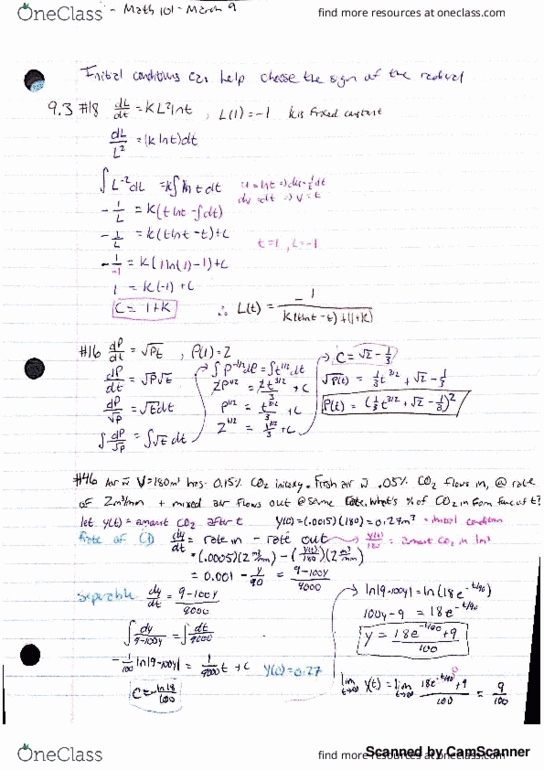 OneClass
- Math 101 - March 9
find more resources at oneclass.com
Initial conditions can help choose the sign of the radical
9.3 #18 dL/dt = kL² ln t , L(1) = -1 k is fixed constant
dL/L² = (k ln t) dt
∫ L⁻² dL = k∫ ln t dt u = ln t ⇒ du = 1/t dt
dv = dt ⇒ v = t
- 1/L = k(t ln t - ∫dt)
- 1/L = k(t ln t - t) + C t=1, L=-1
- 1/-1 = k(1 ln(1) - 1) + C
1 = k(-1) + C
C = 1+k ∴ L(t) = -1/(k(t ln t - t) + (1+k))
#16 dP/dt = √Pt , P(1) = 2
dP/dt = √P √t
dP/√P = √t dt
∫ dP/√P = ∫ √t dt
∫ P^(-1/2) dP = ∫ t^(1/2) dt
2P^(1/2) = 2t^(3/2)/3 + C
P^(1/2) = t^(3/2)/3 + C
2^(1/2) = 1^(3/2)/3 + C
C = √2 - 1/3
√P(t) = 1/3 t^(3/2) + √2 - 1/3
P(t) = (1/3 t^(3/2) + √2 - 1/3)²
#46 Air w V=180m³ has 0.15% CO₂ . Fresh air w .05% CO₂ flows in, @ rate
of 2m³/min + mixed air flows out @ same rate. What's % of CO₂ in room func of t?
let y(t) = amount CO₂ after t y(0) = (.0015)(180) = 0.27m³ = initial condition
Rate of dy/dt = rate in - rate out → y(t)/180 = amount CO₂ in 1m³
= (.0005)(2 m³/min) - (y(t)/180)(2 m³/min)
= 0.001 - y/90 = (9-100y)/9000
Separable dy/dt = (9-100y)/9000
∫ dy/(9-100y) = ∫ dt/9000
- 1/100 ln|9-100y| = 1/9000 t + C y(0) = 0.27
ln|9-100y| = ln(18e^(-t/90))
100y - 9 = 18e^(-t/90)
y = (18e^(-t/90) + 9)/100
lim t→∞ y(t) = lim t→∞ (18e^(-t/90) + 9)/100 = 9/100
OneClass
find more resources at oneclass.com
Scanned by CamScanner